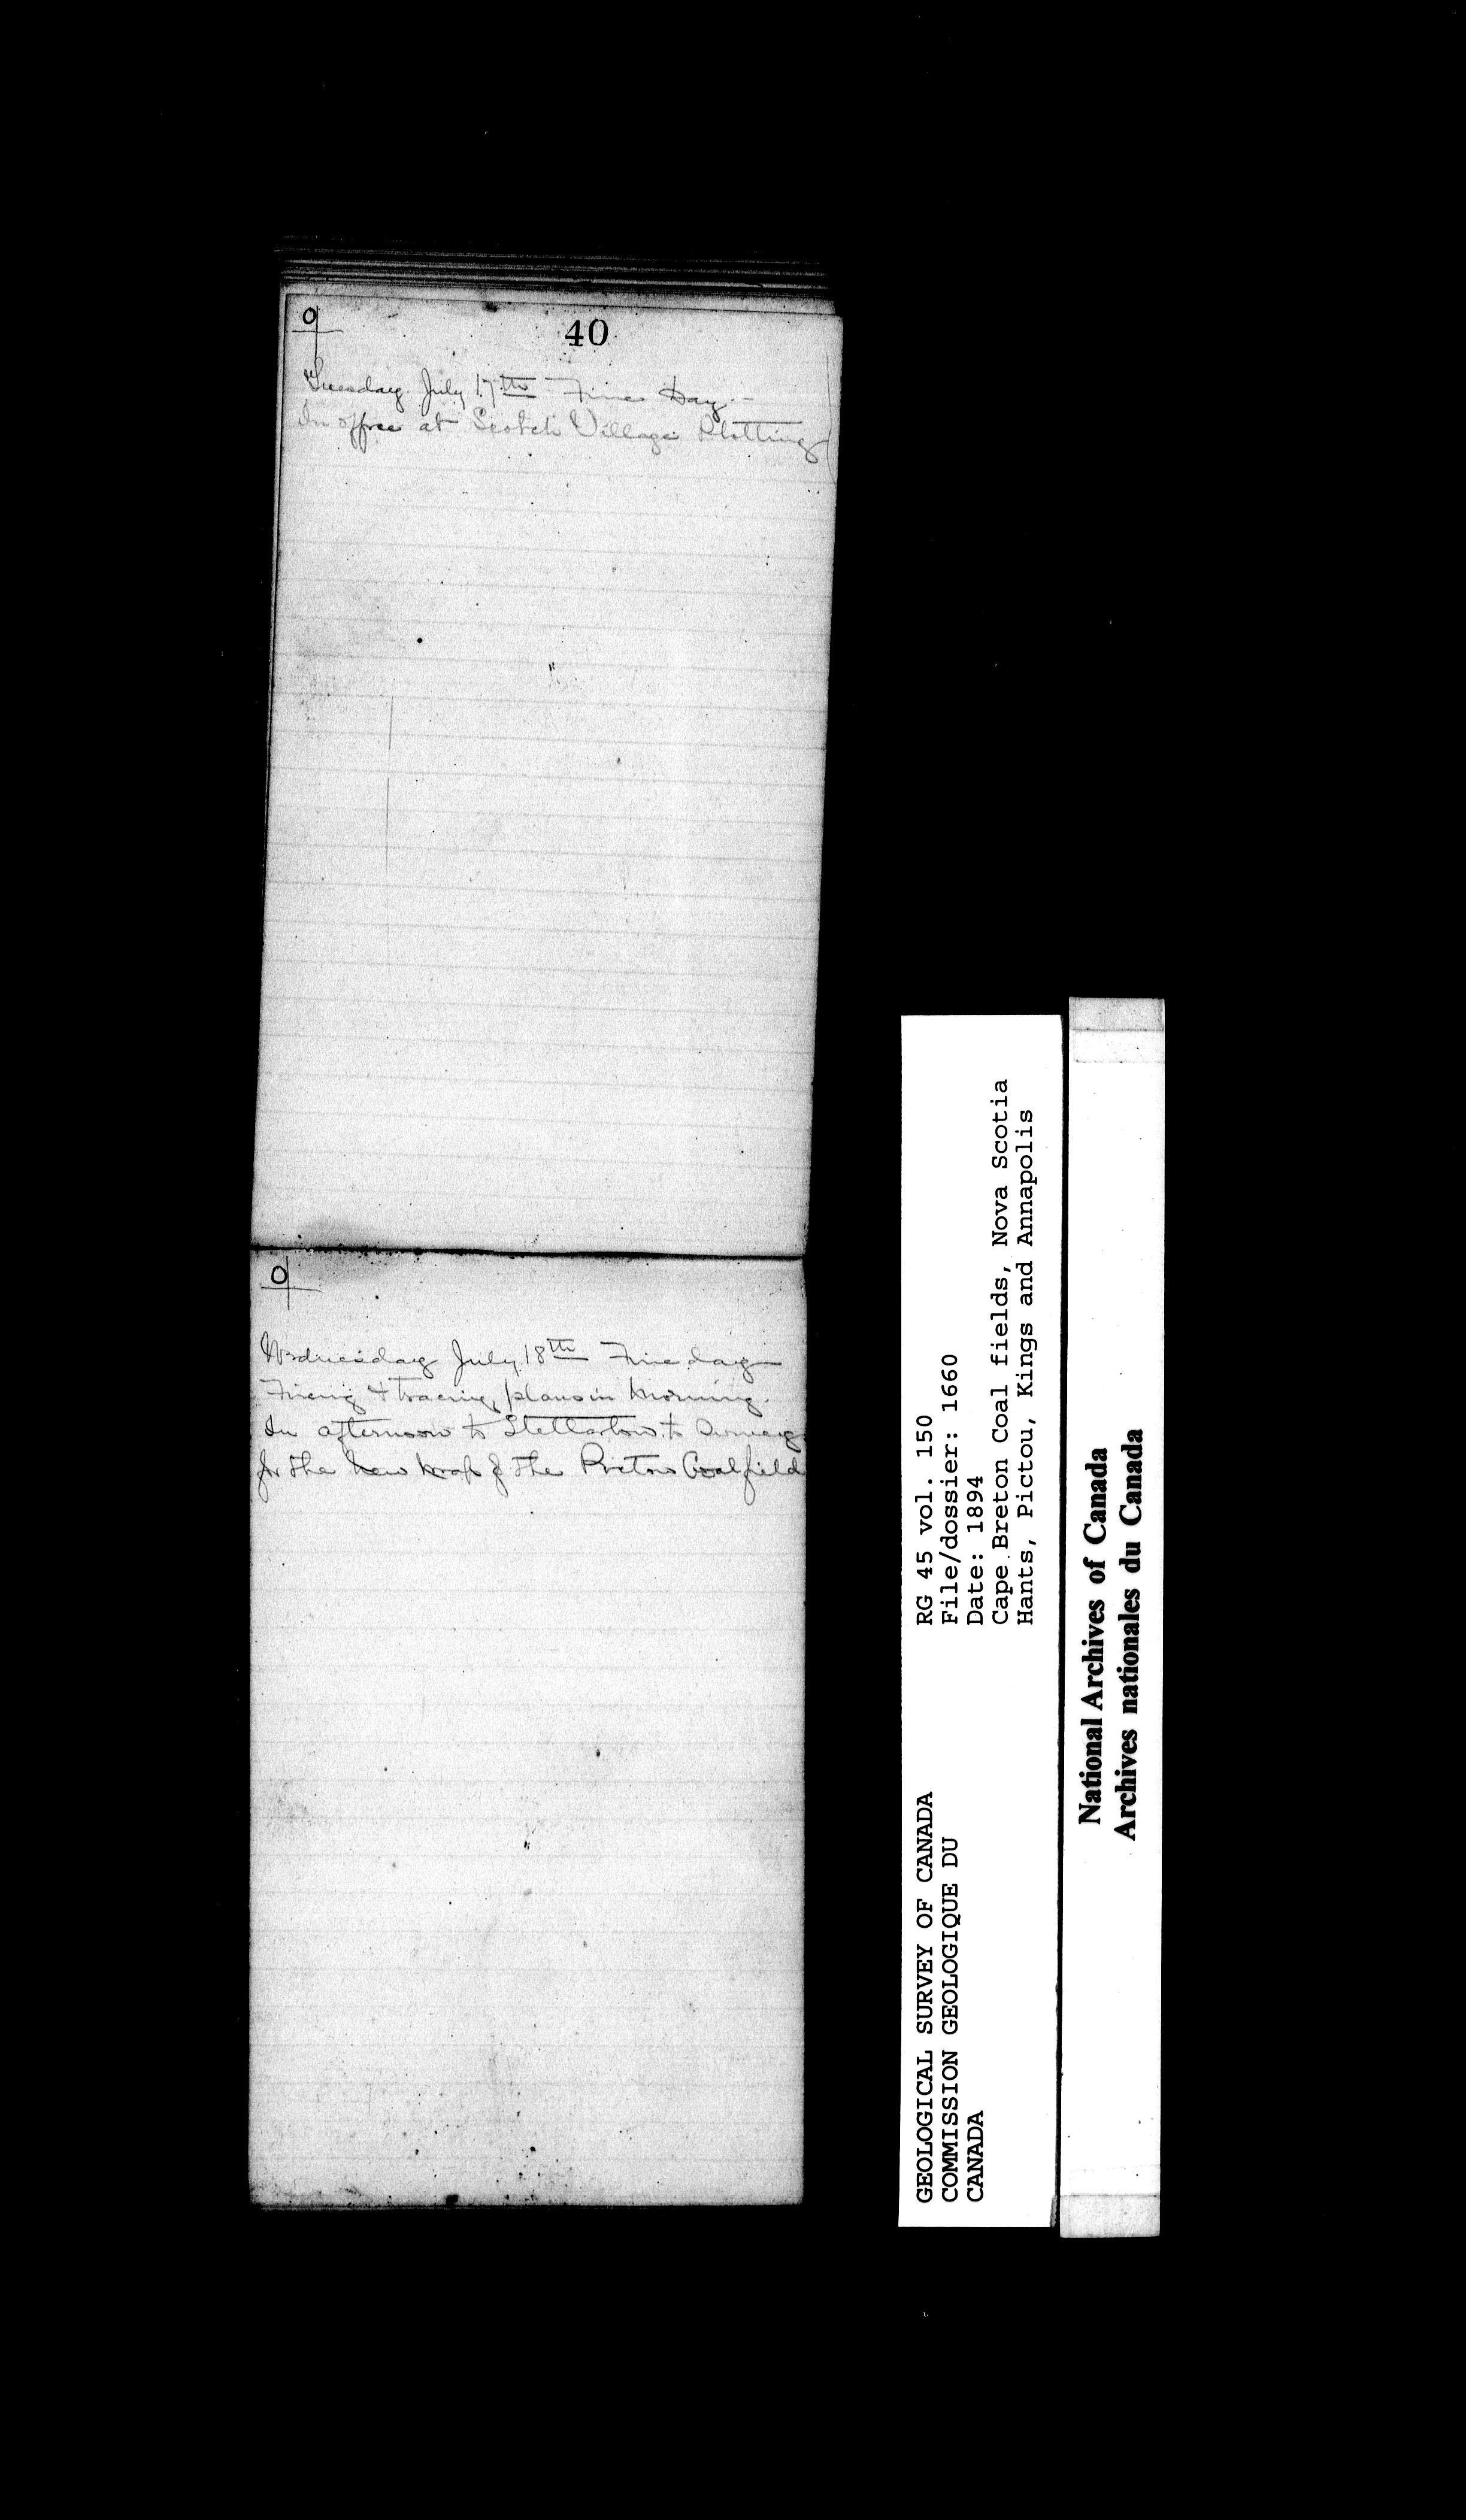 40
Tuesday July 17th Fine Day
In office at Scotch Village Plotting
Wednesday July 18th Fine day
& tracing plans in morning.
In afternoon to Stellarton to survey
for the new map of the Pictou Coalfield
GEOLOGICAL SURVEY OF CANADA
COMMISSION GEOLOGIQUE DU
CANADA
RG 45 vol. 150
File/dossier: 1660
Date: 1894
Cape Breton Coal fields, Nova Scotia
Hants, Pictou, Kings and Annapolis
National Archives of Canada
Archives nationales du Canada